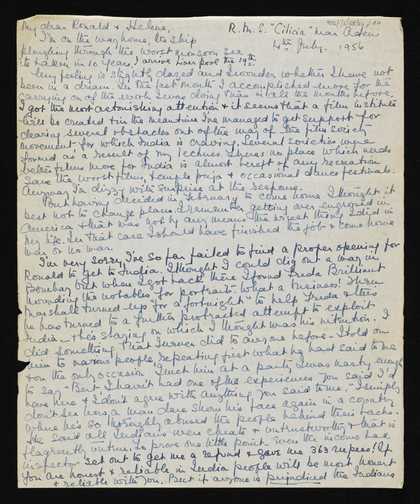 My dear Ronald & Helene,
R.M.S. "Cilicia" near Aden
4th July. 1956
I'm on the way home, the ship
ploughing through the worst monsoon sea
it's taken in 10 years, I arrive Liverpool the 19th
My feeling is slightly dazed and I wonder whether I have not
been in a dream. In the last month I accomplished more for the
carrying on of the work I was doing than in all the months before.
I got the most astonishing attention & it seems that a film institute
will be created & in the meantime I've managed to get support for
clearing several obstacles out of the way of the film society
movement for which India is craving. Several societies were
formed as a result of my lectures. There's no place which needs
better films more for India is almost bereft of any recreation
save the worst films, temple puja & occasional dance festivals.
Anyway I'm dizzy with surprise at the response.
But having decided in February to come home I thought it
best not to change plans. I remember getting very engrossed in
America & that was not by any means the wisest thing I did in
my life. In that case I should have finished the job & come home
war or no war.
I'm very sorry I've so far failed to find a proper opening for
Ronald to get to India. I thought I could dig out a way in
Bombay but when I got back there I found Freda Brilliant
hounding the notables for portraits. What a business! Then
Marshall turned up "for a fortnight" to help Freda & then
he has turned to a further protracted attempt to exploit
India – this staying on which I thought was his intention. I
did something that I never did to anyone before – I told on
them to various people repeating just what he had said to me
on the first occasion I met him at a party. I was hardy enough
to say "But I haven't had one of the experiences you said I'd
have here & I don't agree with anything you said to me". I simply
don't see how a man dare show his face again in a country
when he's so thoroughly abused the people behind their backs.
He said all Indians were cheats & untrustworthy & that is
flagrantly untrue. To prove one little point. Even the income tax
inspector set out to get me a refund & gave me 363 rupees! If
you are honest & reliable in India people will be most honest
& reliable with you. But if anyone is prejudiced the Indians